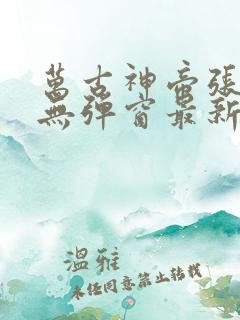 萬古神帝張
無彈窗最新
溫雅
未任同意禁止转载